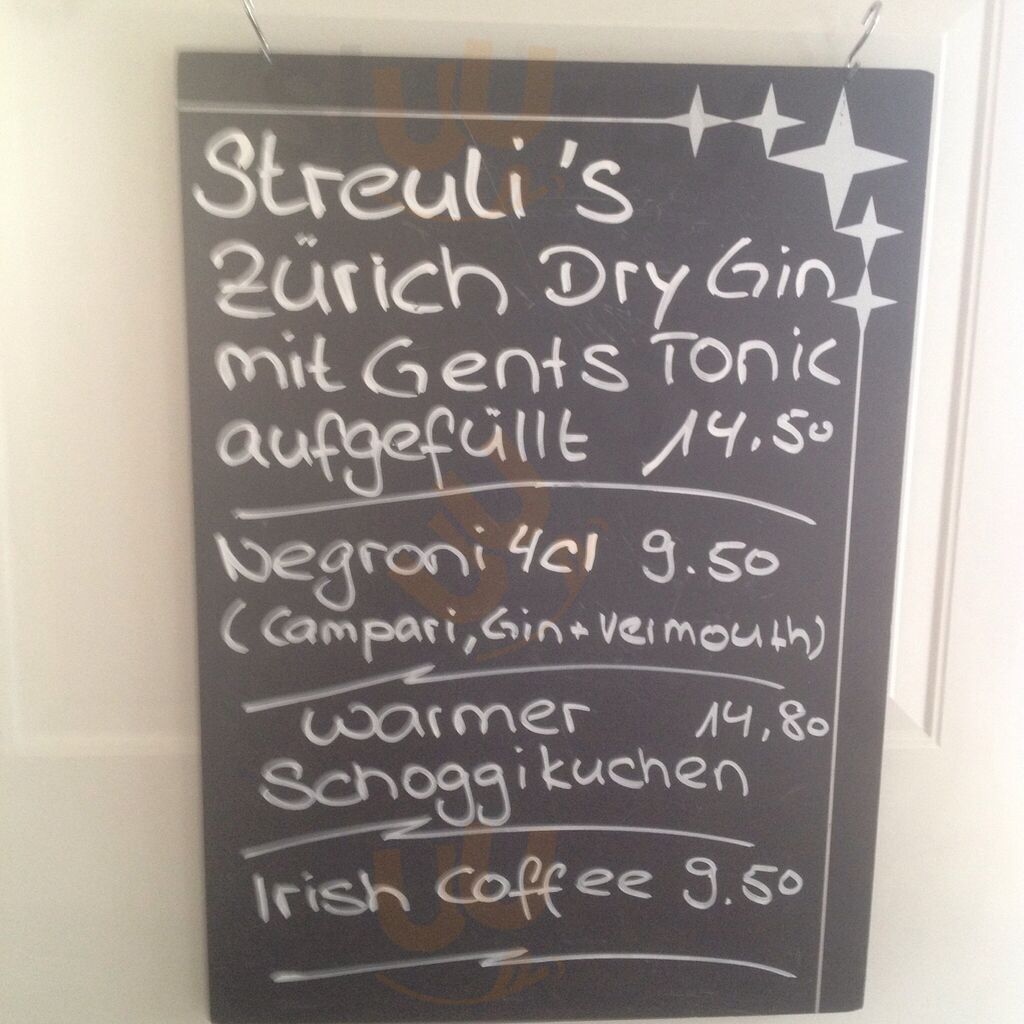 Streuli's
Zürich Dry Gin
mit Gents Tonic
aufgefüllt 14.50
Negroni 4cl 9.50
(Campari, Gin + Vermouth)
warmer 14,80
Schoggikuchen
Irish Coffee 9.50